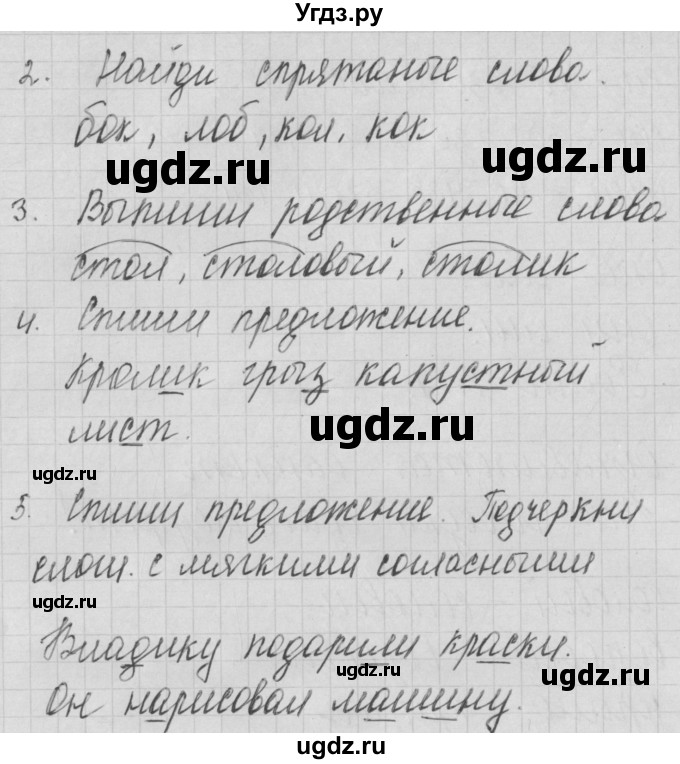 Угдз.ру
2. Найди спрятаные слова.
бок, лоб, кол, кок
ugdz.ru ugdz.ru
3. Выпиши родственные слова
стол, столовый, столик
ugdz.ru ugdz.ru
4. Спиши предложение.
Кролик грыз капустный
ugdz.ru
лист.
ugdz.ru
5. Спиши предложение. Подчеркни
слоги. с мягкими согласными
ugdz.ru
Владику подарили краски.
ugdz.ru ugdz.ru
Он нарисовал машину.
ugdz.ru
ugdz.ru